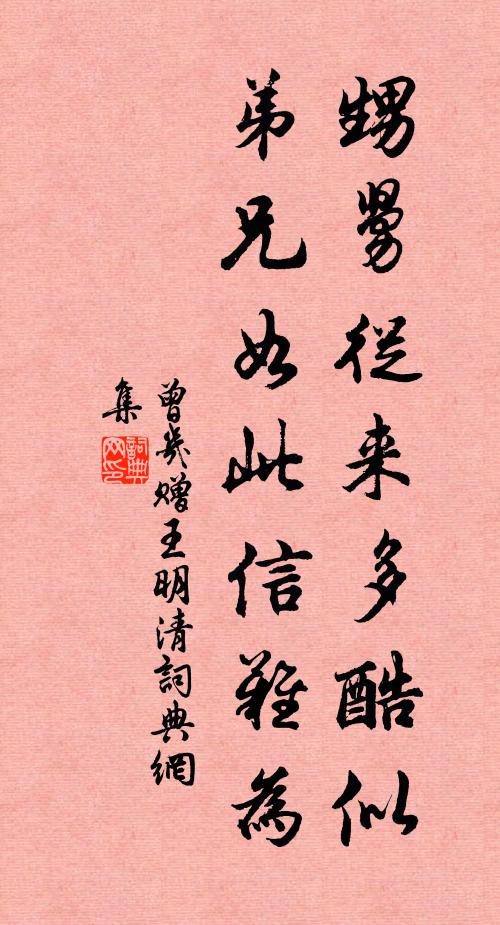 甥舅從来多酷似
弟兄如此信難為
曾幾贈王明清詞典網
集
詞典网印